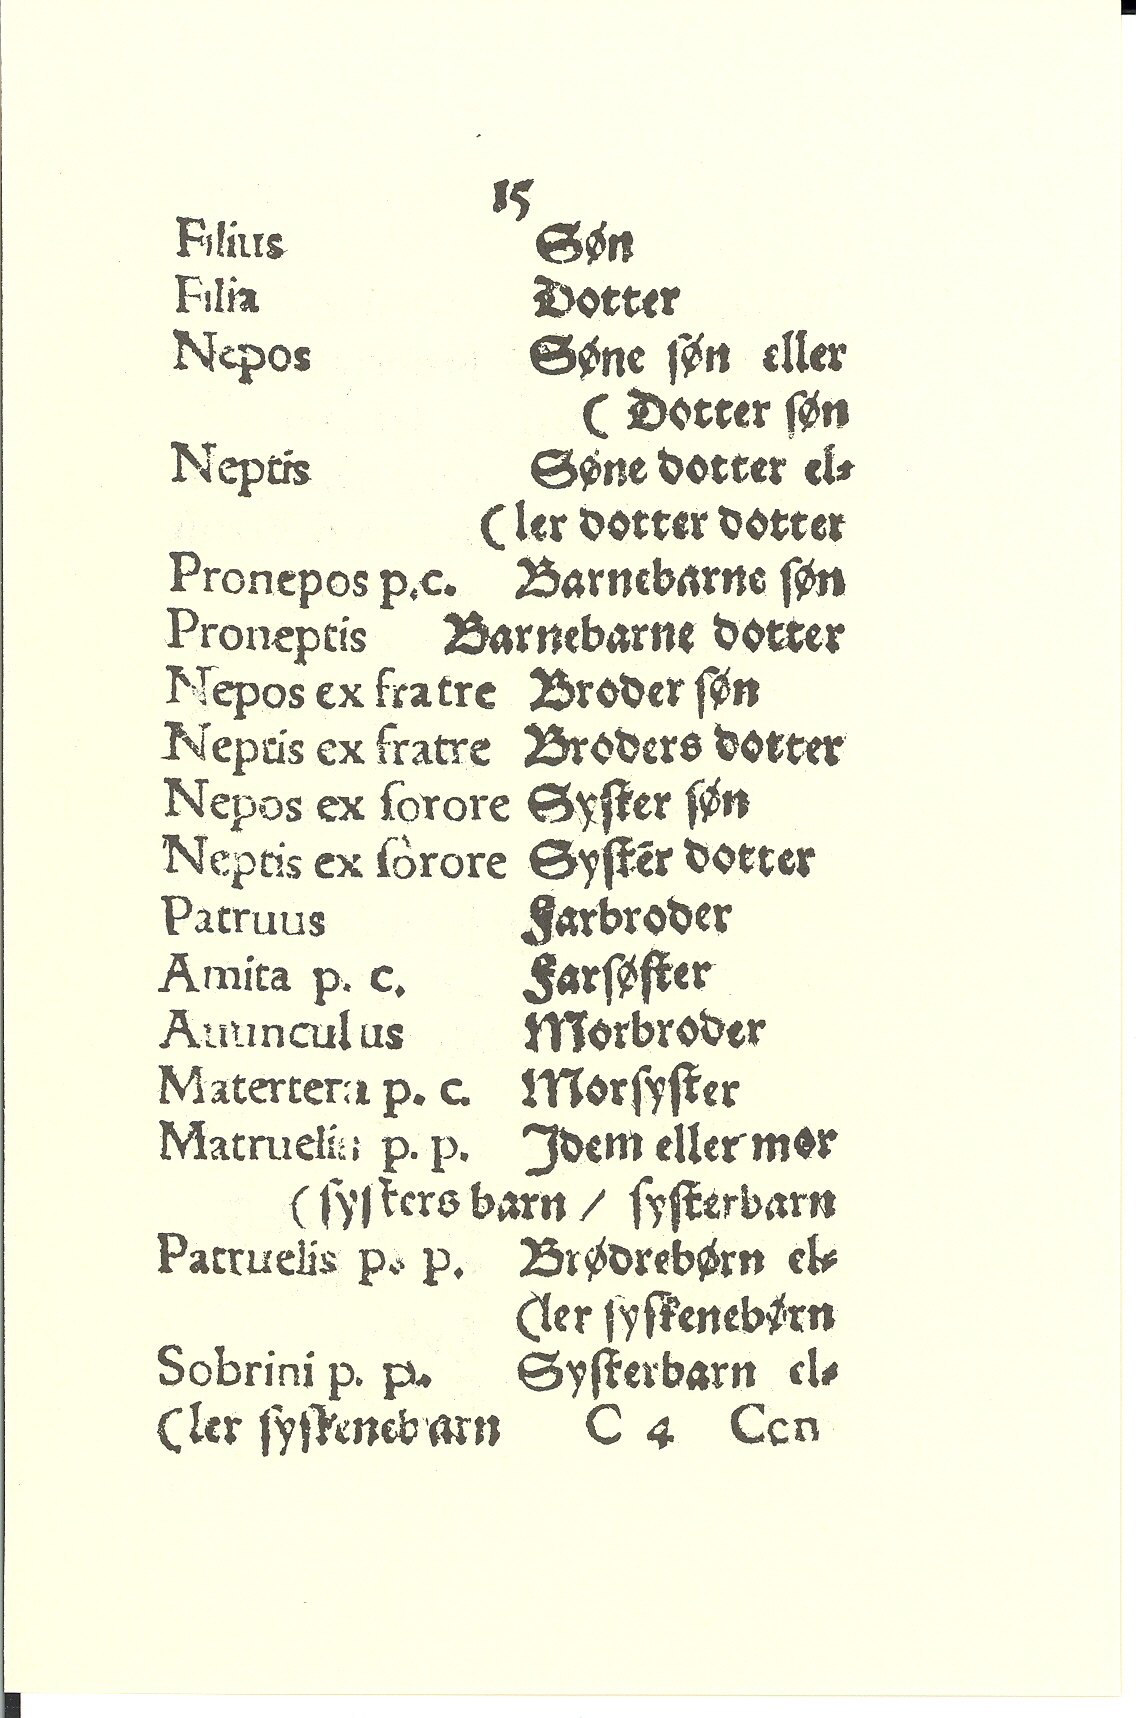 15
Filius Søn
Filia Dotter
Nepos Søne ſøn eller
( Dotter ſøn
Neptis Søne dotter el⸗
( ler dotter dotter
Pronepos p.c. Barnebarne ſøn
Proneptis Barnebarne dotter
Nepos ex fratre Broder ſøn
Neptis ex fratre Broders dotter
Nepos ex ſorore Syſter ſøn
Neptis ex ſorore Syſter dotter
Patruus Farbroder
Amita p. c. Farſøſter
Auunculus Morbroder
Matertera p. c. Morſyſter
Matruelis p. p. Idem eller mor
( ſyſters barn / ſyſterbarn
Patruelis p. p. Brødrebørn el⸗
(ler ſyſkenebørn
Sobrini p. p. Syſterbarn el⸗
( ler ſyſkenebarn C 4 Con